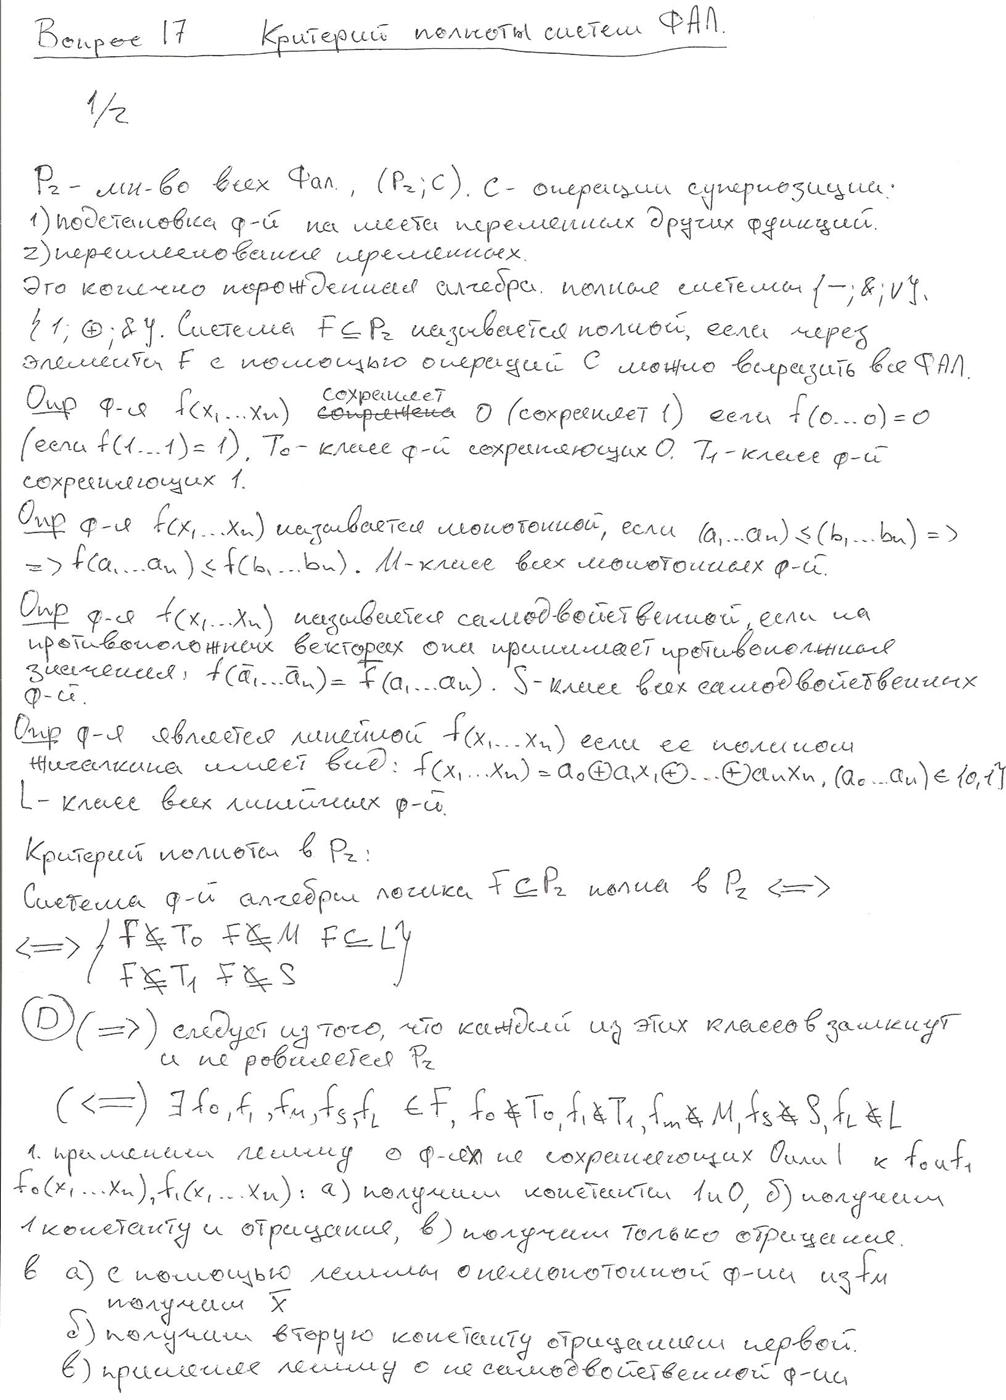 Вопрос 17 Критерий полноты систем ФАЛ.
1/2
P₂ - мн-во всех Фал., (P₂; C). C - операции суперпозиции:
1) подстановка ф-й на места переменных других фдикций.
2) переименование переменных.
Это конечно порожденная алгебра. полные системы {‾; &; ∨},
{1; ⊕; &}. Система F ⊆ P₂ называется полной, если через
элементы F с помощью операций C можно выразить все ФАЛ.
Опр ф-я f(x₁...xₙ) сохраняет 0 (сохраняет 1) если f(0...0)=0
(если f(1...1)=1), T₀ - класс ф-й сохраняющих 0. T₁ - класс ф-й
сохраняющих 1.
Опр ф-я f(x₁...xₙ) называется монотонной, если (a₁...aₙ) ≤ (b₁...bₙ) =>
=> f(a₁...aₙ) ≤ f(b₁...bₙ). M - класс всех монотонных ф-й.
Опр ф-я f(x₁...xₙ) называется самодвойственной, если на
противоположных векторах она принимает противополжные
значения, f(a̅₁...a̅ₙ) = f̅(a₁...aₙ). S - класс всех самодвойственных
ф-й.
Опр ф-я является линейной f(x₁...xₙ) если ее полином
Жигалкина имеет вид: f(x₁...xₙ) = a₀⊕a₁x₁⊕...⊕aₙxₙ, (a₀...aₙ) ∈ {0,1}
L - класс всех линейных ф-й.
Критерий полноты в P₂:
Система ф-й алгебры логики F ⊆ P₂ полна в P₂ <=>
<=> { F ⊈ T₀ F ⊈ M F ⊆ L }
F ⊈ T₁ F ⊈ S
(D) (=>) следует из того, что каждый из этих классов замкнут
и не ровняется P₂
(<=) ∃ f₀, f₁, fₘ, fₛ, f_L ∈ F, f₀ ∉ T₀, f₁ ∉ T₁, fₘ ∉ M, fₛ ∉ S, f_L ∉ L
1. применим лемму о ф-ях не сохраняющих 0 или 1 к f₀ и f₁
f₀(x₁...xₙ), f₁(x₁...xₙ): а) получим константы 1 и 0, б) получим
1 константу и отрицание, в) получим только отрицание.
в а) с помощью леммы о немонотонной ф-ии из fₘ
получим x̅
б) получим вторую константу отрицанием первой.
в) применяя лемму о не самодвойственной ф-ии